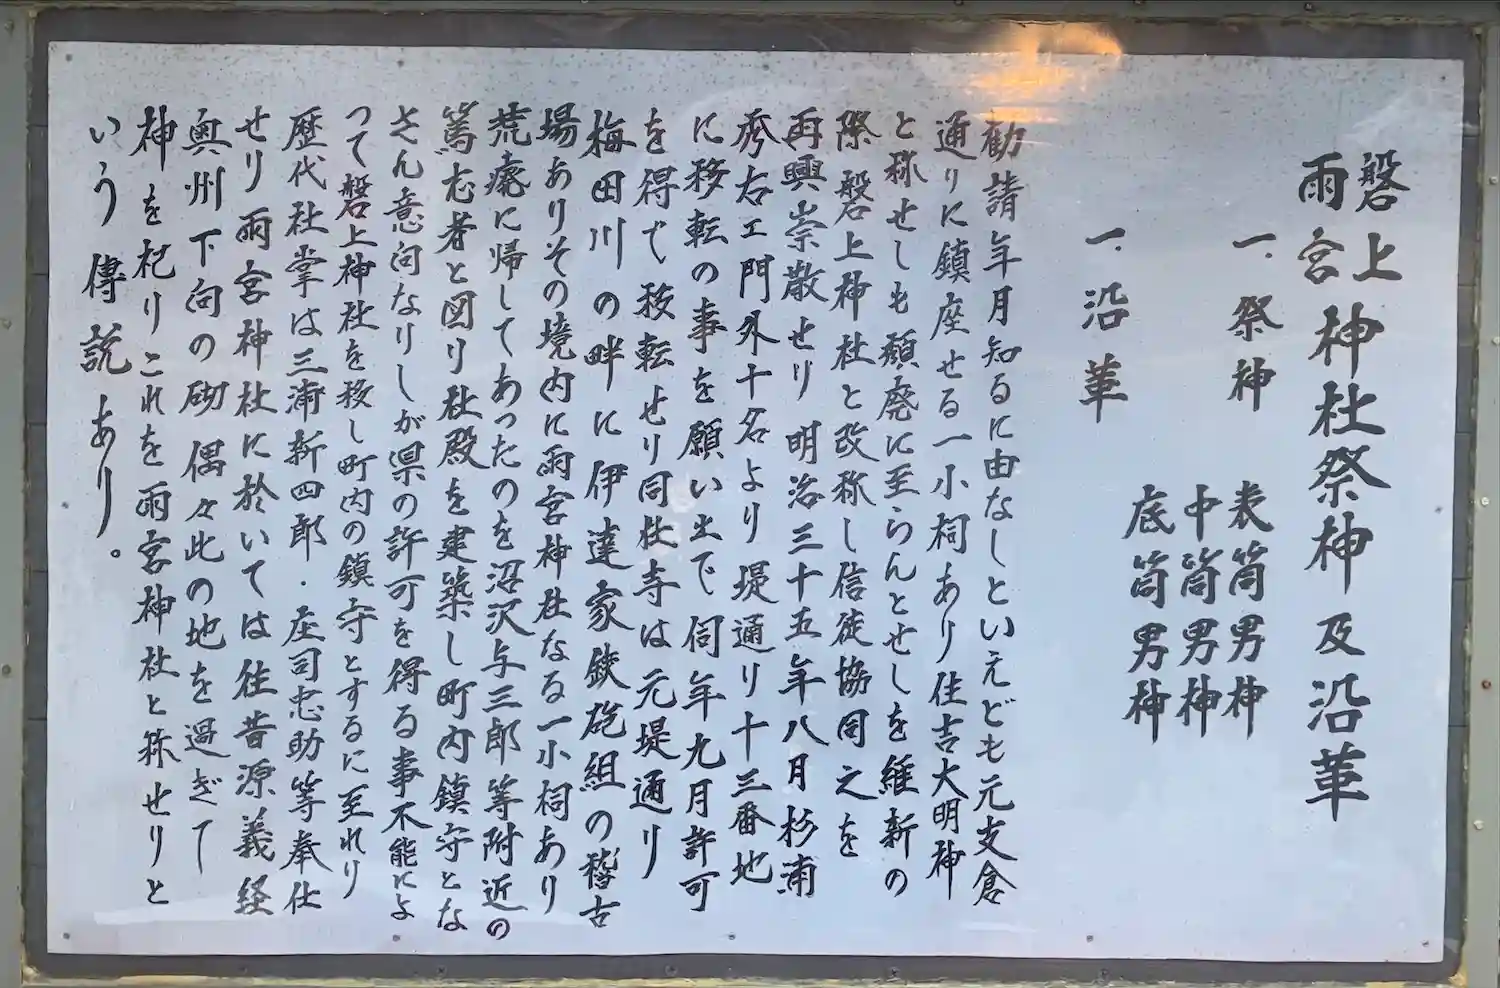 磐上
雨宮
神社祭神及沿革
一.祭神
表筒男神
中筒男神
底筒男神
一.沿革
勧請年月知るに由なしといえども元支倉
通りに鎮座せる一小祠あり住吉大明神
と称せしも頽廃に至らんとせしを維新の
際磐上神社と改称し信徒協同之を
再興崇敬せり明治三十五年八月杉浦
秀右エ門外十名より堤通り十三番地
に移転の事を願い出で同年九月許可
を得て移転せり同社寺は元堤通り
梅田川の畔に伊達家鉄砲組の稽古
場ありその境内に雨宮神社なる一小祠あり
荒廃に帰してあったのを沼沢与三郎等附近の
篤志者と図り社殿を建築し町内鎮守とな
さん意向なりしが県の許可を得る事不能によ
つて磐上神社を移し町内の鎮守とするに至れり
歴代社掌は三浦新四郎.庄司忠助等奉仕
せり雨宮神社に於いては往昔源義経
奥州下向の砌偶々此の地を過ぎて
神を祀りこれを雨宮神社と称せりと
いう傳説あり。